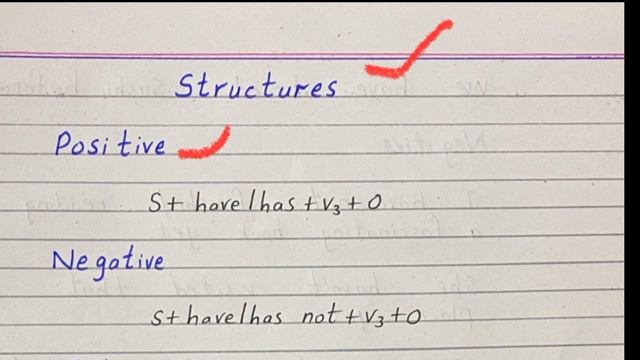 Structures
Positive
S+ have/has + V₃ + O
Negative
S+ have/has not + V₃ + O